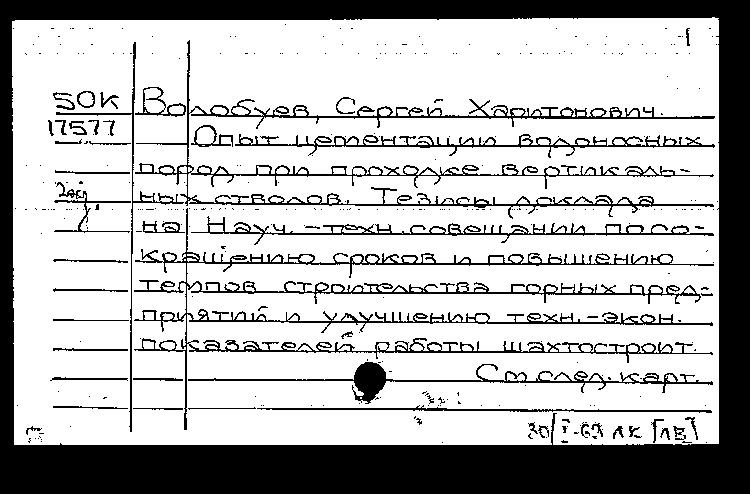 1
50К Волобуев, Сергей Харитонович.
17577 Опыт цементации водоносных
пород при проходке вертикаль-
2 экз. ных стволов. Тезисы доклада
на Науч.-техн. совещании по со-
кращению сроков и повышению
темпов строительства горных пред-
приятий и улучшению техн.-экон.
показателей работы шахтостроит.
См. след. карт.
30/I-69 ЛК [ЛВ]